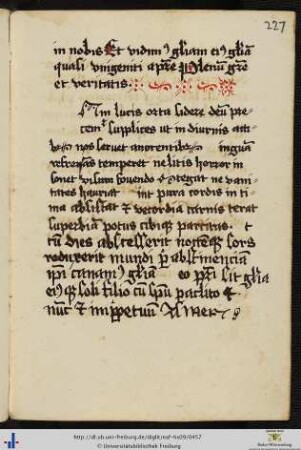 227
in nobis Et vidimꝰ gliam eiꝰ gliā
quasi vnigeniti a pr̄e Plenū grē
et veritatis
Iam lucis orto sidere deū pre
cemʳ supplices ut in diurnis acti
bus nos seruet a nocentibꝰ inguā
refrenans temperet ne litis horror in
sonet visum fouendo ꝯtegat ne vani
tates hauriat int pura cordis in ti
ma absistat & vecordia carnis terat
superbiā potus cibiqꝫ parcitas. t
cū dies abscesserit noctemqꝫ sors
reduxerit mundi p abstinenciā
ip̄i canamꝰ gliā eo pr̄i sit glia
eiꝰqꝫ soli filio cū sp̄u paclito &
nūc & in ꝑpetuum Amen
http://dl.ub.uni-freiburg.de/diglit/nsf-hs09/0457
© Universitätsbibliothek Freiburg
Baden-Württemberg